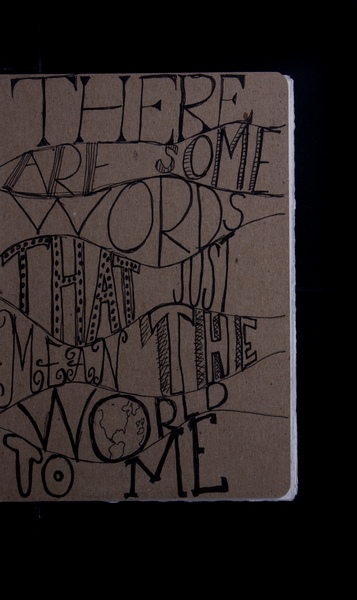 THERE
ARE SOME
WORDS
THAT JUST
MEAN THE
WORLD
TO ME